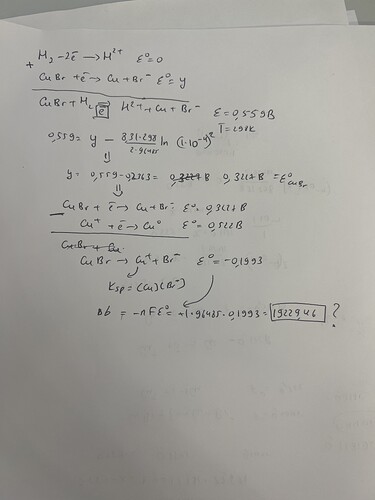 H₂ - 2e̅ → H²⁺ ε⁰=0
+
CuBr + e̅ → Cu + Br⁻ ε⁰= y
CuBr + H₂ e̅ H²⁺ + Cu + Br⁻ ε = 0,559 B
T = 298K
0,559 = y - 8,31·298 / 2·96485 ln (1·10⁻⁴)²
⇓
y = 0,559 - 0,2363 = 0,3227 B 0,3227 B = ε⁰ CuBr
⇓
CuBr + e̅ → Cu + Br⁻ ε⁰= 0,3227 B
-
Cu⁺ + e̅ → Cu⁰ ε⁰= 0,522 B
CuBr + Cu
CuBr → Cu⁺ + Br⁻ ε⁰ = -0,1993
Ksp = (Cu)(Br⁻)
= -nFε⁰ = +1·96485·0,1993 = 19229,46 ?